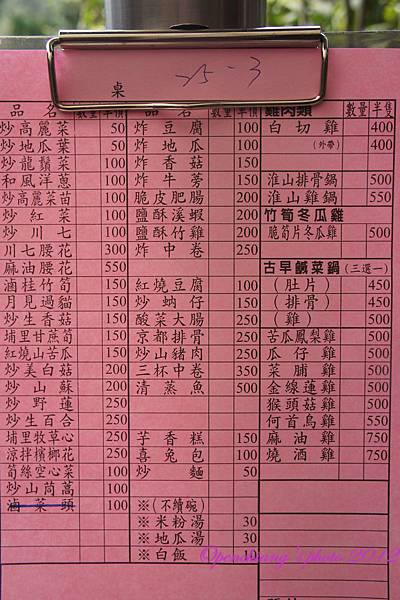 桌
品名 數量 單價
炒高麗菜 50
炒地瓜葉 50
炒龍鬚菜 100
和風洋蔥 100
炒高麗菜苗 100
炒紅菜 100
炒川七 100
川七腰花 300
麻油腰花 550
滷桂竹筍 150
月見過貓 150
炒生香菇 150
埔里甘蔗筍 150
紅燒山苦瓜 150
炒美白菇 200
炒山蘇 200
炒野蓮 250
炒生百合 250
埔里牧草心 250
涼拌檳榔花 250
筍絲空心菜 100
炒山茼萵 100
滷菜頭 100
品名 數量 單價
炸豆腐 100
炸地瓜 100
炸香菇 150
炸牛蒡 150
脆皮肥腸 200
鹽酥溪蝦 200
鹽酥竹雞 200
炸中卷 250
紅燒豆腐 100
炒蚋仔 150
酸菜大腸 250
京都排骨 250
炒山豬肉 250
三杯中卷 350
清蒸魚 500
芋香糕 150
喜兔包 100
炒麵 50
※(不續碗)
※米粉湯 30
※地瓜湯 30
※白飯 10
雞肉類 數量 半隻
白切雞 400
(外帶) 400
淮山排骨鍋 500
淮山雞鍋 550
竹筍冬瓜雞
脆筍片冬瓜雞 500
古早鹹菜鍋(三選一)
(肚片) 450
(排骨) 450
(雞) 500
苦瓜鳳梨雞 500
瓜仔雞 500
菜脯雞 500
金線蓮雞 500
猴頭菇雞 500
何首烏雞 550
麻油雞 750
燒酒雞 750